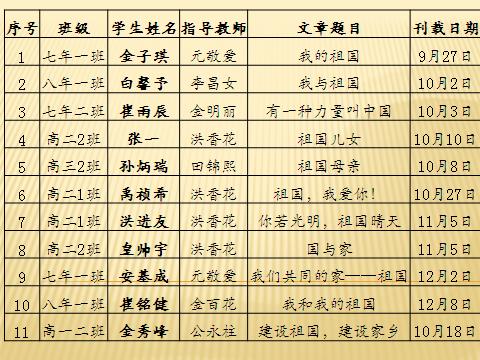 序号 班级 学生姓名 指导教师 文章题目 刊载日期
1 七年一班 金子琪 元敬爱 我的祖国 9月27日
2 八年一班 白馨予 李昌女 我与祖国 10月2日
3 七年二班 崔雨辰 金明丽 有一种力量叫中国 10月3日
4 高二2班 张一 洪香花 祖国儿女 10月10日
5 高三2班 孙炳瑞 田锦熙 祖国母亲 10月8日
6 高二1班 禹祯希 洪香花 祖国，我爱你！ 10月27日
7 高二1班 洪进友 洪香花 你若光明，祖国晴天 11月5日
8 高二2班 皇帅宇 洪香花 国与家 11月5日
9 七年一班 安基成 元敬爱 我们共同的家——祖国 12月2日
10 八年一班 崔铭健 金百花 我和我的祖国 12月8日
11 高一二班 金秀峰 公永柱 建设祖国，建设家乡 10月18日